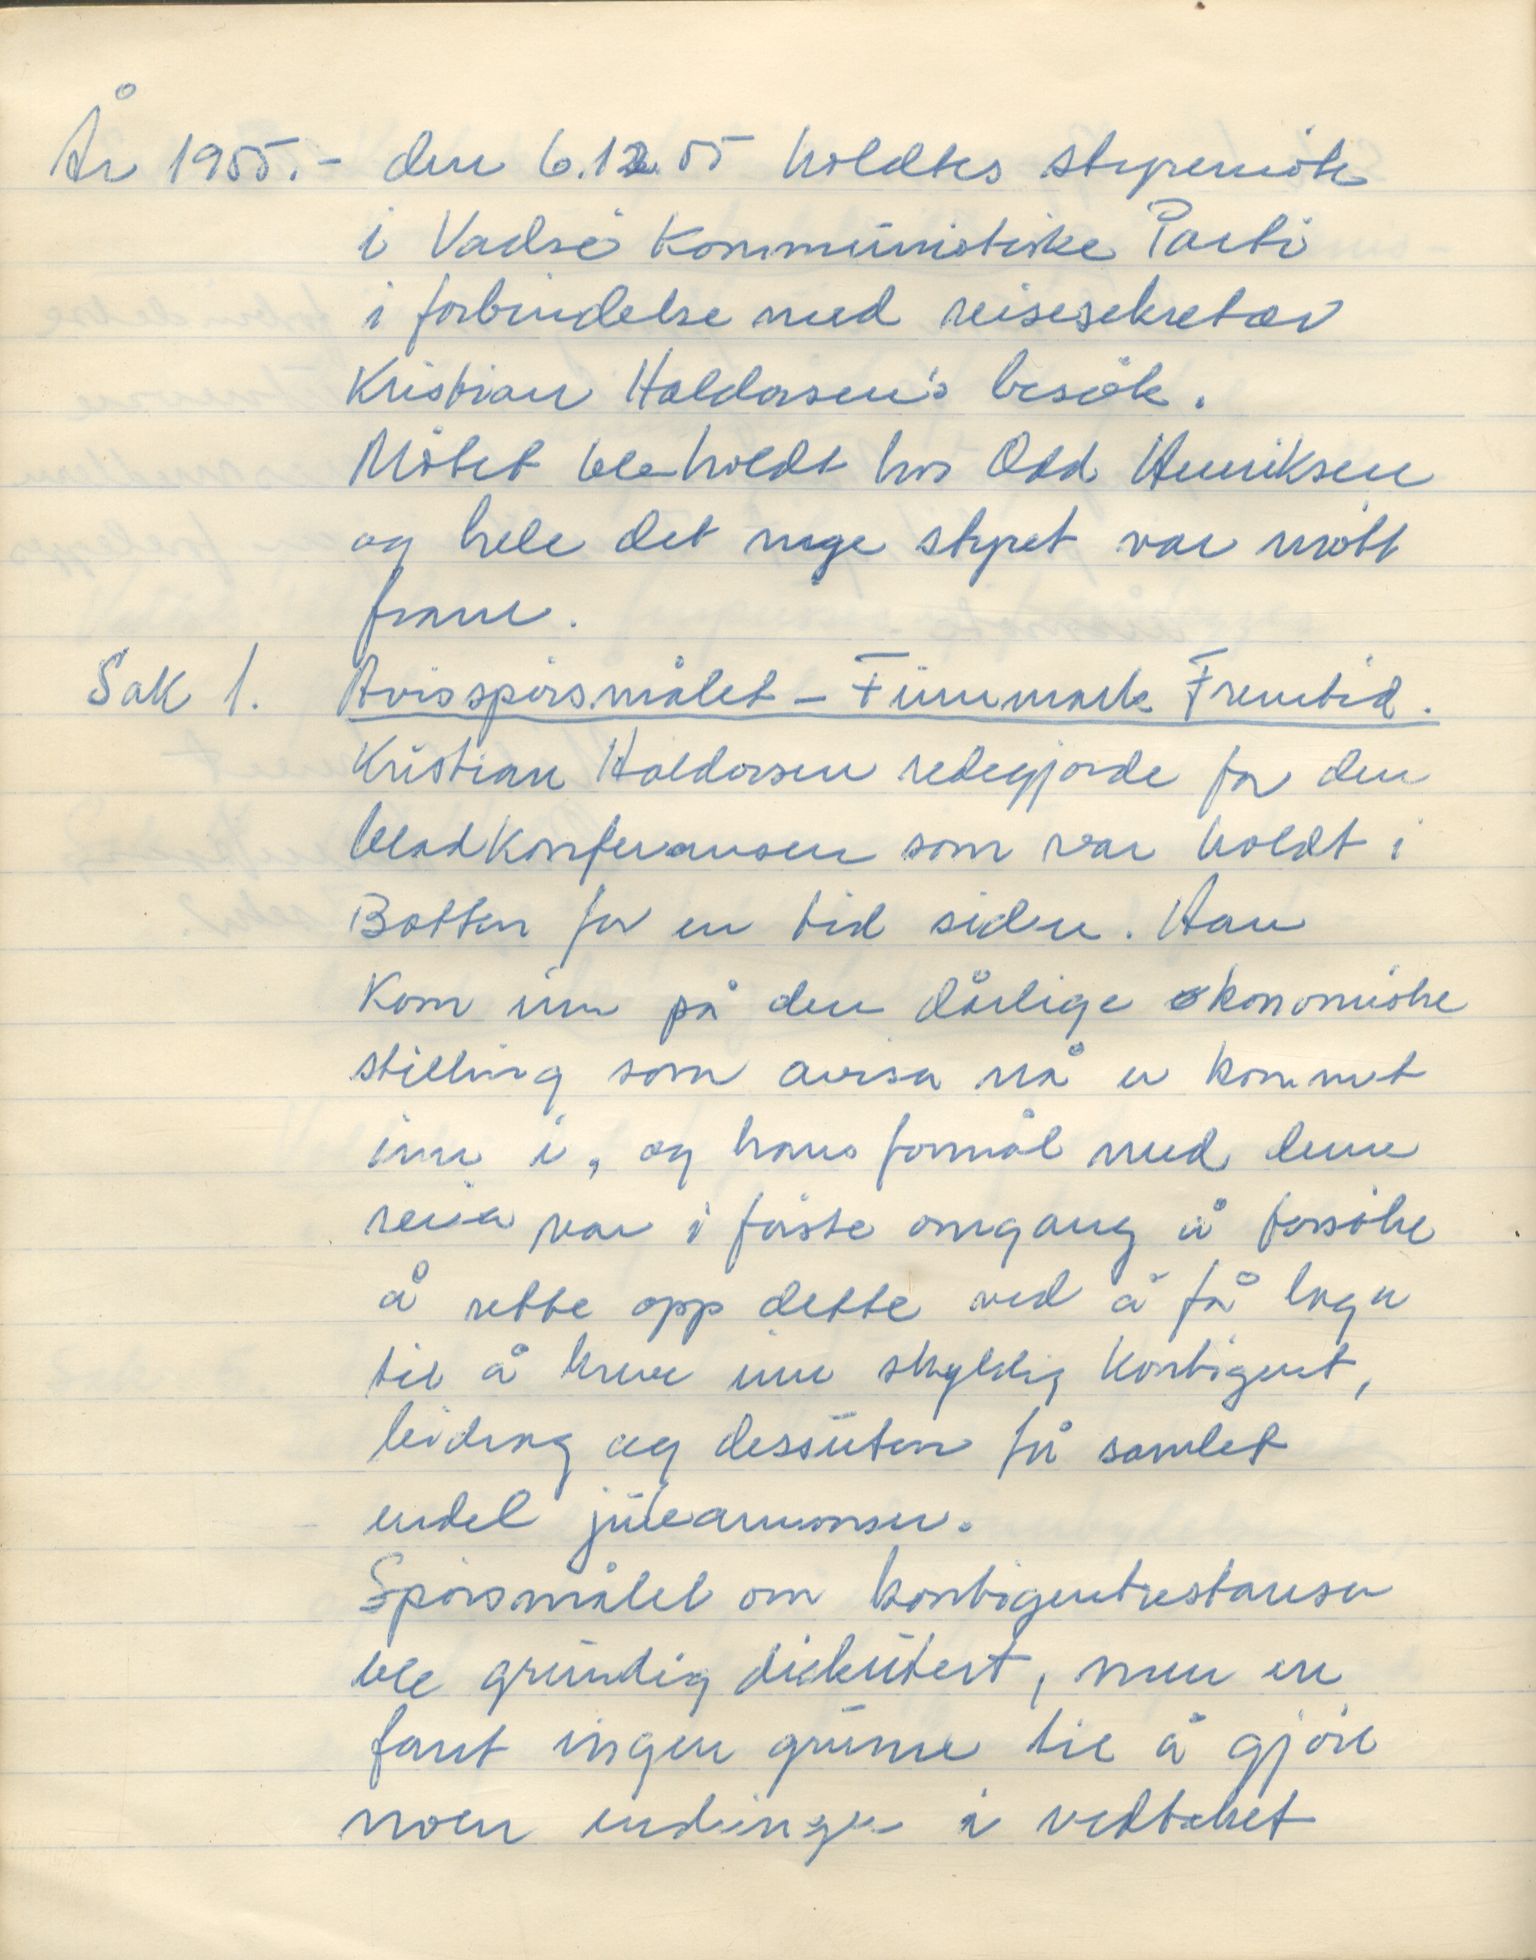 År 1955.- den 6.12.55 holdtes styremöte
i Vadsö Kommunistiske Parti
i forbindelse med reisesekretær
Kristian Haldorsen's besök.
Mötet ble holdt hos Odd Henriksen
og hele det nye styret var mött
fram.
Sak 1. Avisspörsmålet - Finnmark Fremtid.
Kristian Haldorsen redegjorde for den
bladkonferansen som var holdt i
Botten for en tid siden. Han
kom inn på den dårlige økonomiske
stilling som avisa nå er kommet
inn i, og hans formål med denne
reisa var i förste omgang å forsöke
å rette opp dette ved å få laga
til å kreve inn skyldig kontigent,
leidang og dessuten få samlet
endel juleannonser.
Spörsmålet om kontigentrestanser
ble grundig diskutert, men en
fant ingen grunn til å gjöre
noen endinger i vedtaket